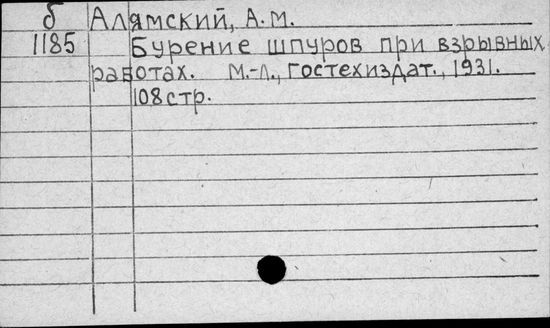 б Алямский, А.М.
1185 Бурение шпуров при взрывных
работах. М.-Л., Гостехиздат., 1931.
108стр.